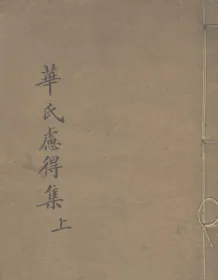 華氏慮得集上